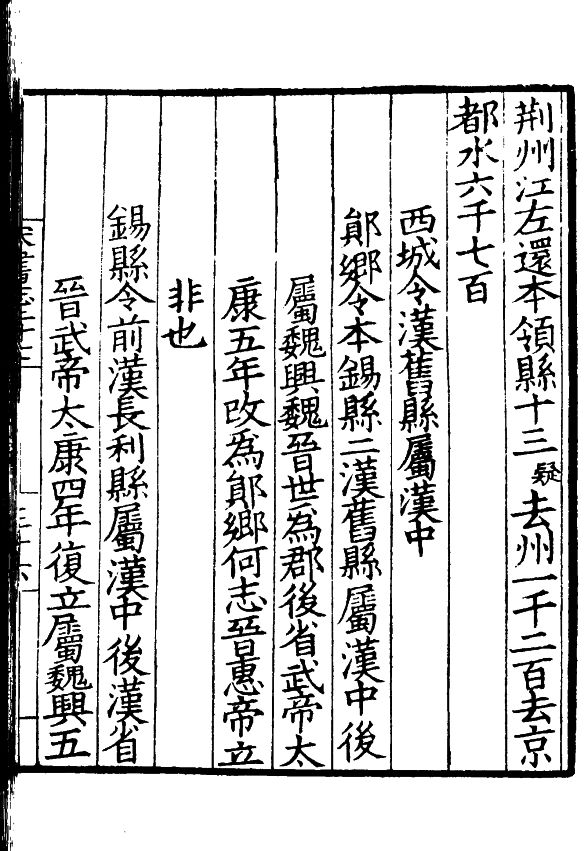 荆州江左還本領縣十三疑去州一千二百去京
都水六千七百
西城令漢舊縣屬漢中
鄖鄉令本錫縣二漢舊縣屬漢中後
屬魏興魏晉世為郡後省武帝太
康五年改為鄖鄉何志晉惠帝立
非也
錫縣令前漢長利縣屬漢中後漢省
晉武帝太康四年復立屬魏興五